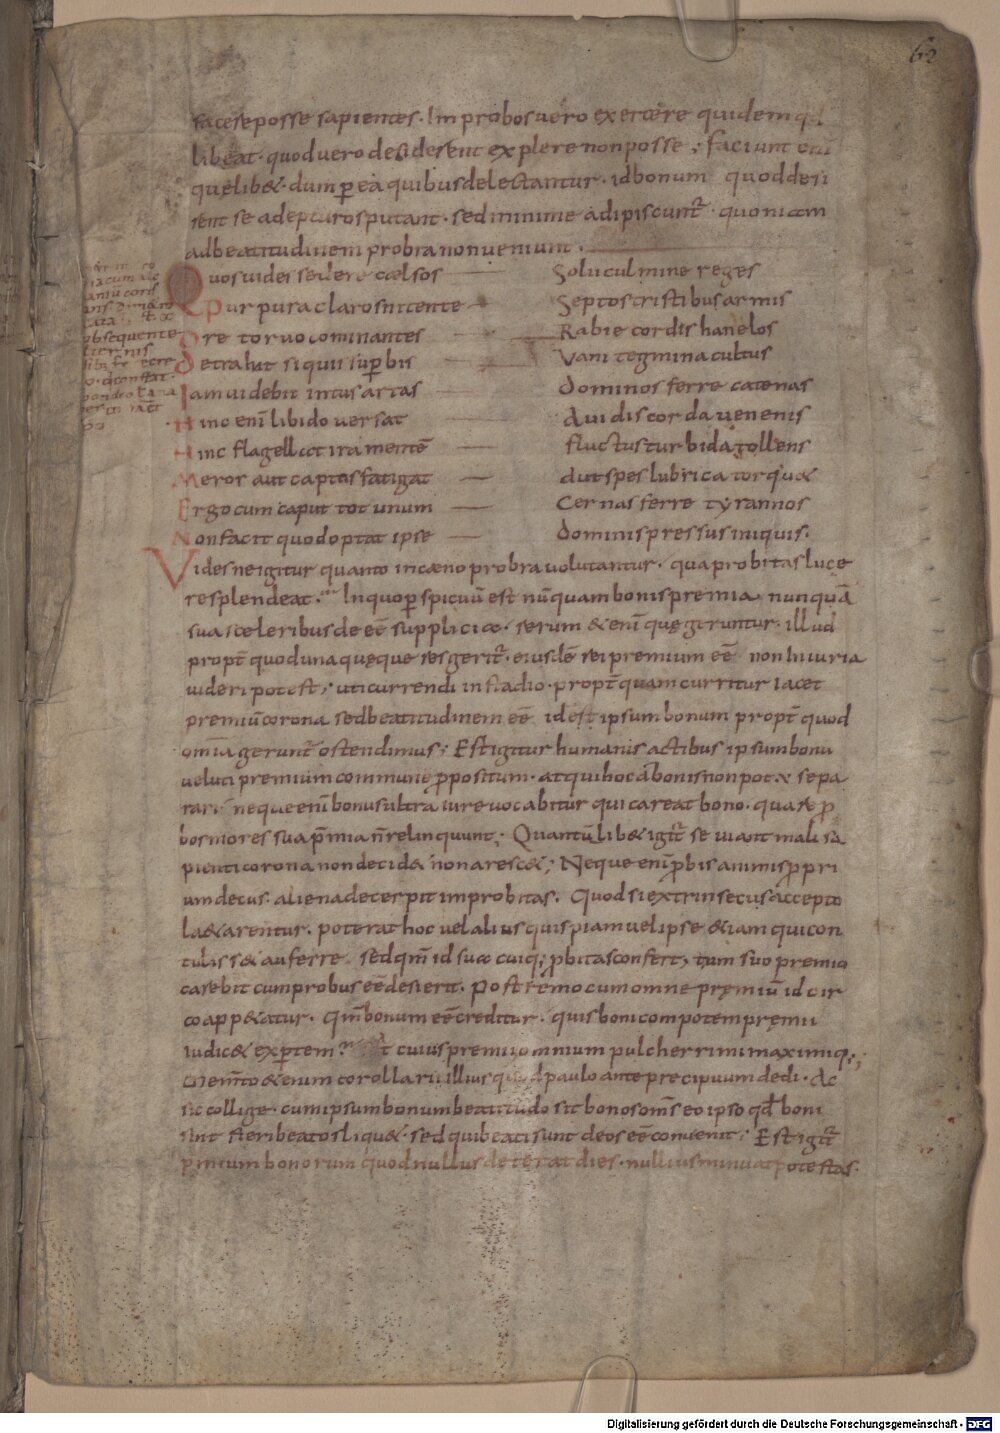 62
facere posse sapientes. Improbos vero exercere quidem qd
libeat. quod vero desiderent explere non posse; faciunt eni
quęlib&. dum p̄ ea quibus delectantur. id bonum quod desi
rent se adepturos putant. sed minime adipiscunt̄. quoniam
ad beatitudinem probra non veniunt.
Quos vides sedere cælsos Solii culmine reges
Purpura claros nitente Septos tristibus armis
Ore torvo cominantes Rabie cordis hanelos
Detrahat si quis sup̄bis Vani tegmina cultus
Iam videbit intus artas dominos ferre catenas
Hinc eni libido versat Avidis corda venenis
Hinc flagellat ira mentē fluctus turbida tollens
Meror aut captos fatigat aut spes lubrica torqu&
Ergo cum caput tot unum Cernas ferre tyrannos
Non facit quod optat ipse dominis pressus iniquis.
Videsne igitur quanto in cæno probra volutantur. qua probitas luce
resplendeat. In quo p̄spicuū est nūquam bonis premia nunquā
sua sceleribus deeē supplicia. rerum &enī quę geruntur. illud
propt̄ quod unaquęque res gerit̄. eiusdē rei premium eē non iniuria
videri potest; uti currendi in stadio. propt̄ quam curritur iacet
premiū corona sed beatitudinem eē id est ipsum bonum propt̄ quod
omīa gerunt̄ ostendimus; Est igitur humanis actibus ipsum bonū
veluti premium commune p̄positum. atqui hoc a bonis non pot& sepa
rari. neque enī bonus ultra iure vocabitur qui careat bono. quare p̄
bos mores sua p̄mia n̄ relinquunt; Quantūlib& igit̄ seviant mali sa
pienti corona non decid& non aresc&; Neque enī p̄bis animis p̄pri
um decus. aliena decerpit improbitas. Quod si extrinsecus accepto
l&arentur. poterat hoc vel alius quispiam vel ipse &iam qui con
tuliss& auferre. sed qm̄ id sua cuiq; p̄bitas confert, tum suo premio
carebit cum probus eē desierit. Postremo cum omne pręmiū idcir
co app&atur. qm̄ bonum eē creditur. quis boni compotem pręmii
iudic& exp̄tem. At cuius premii omnium pulcherrimi maximiq;;
Mem̄to &enim corollarii illius quod paulo ante precipuum dedi. Ac
sic collige. cum ipsum bonum beatitudo sit bonos om̄s eo ipso qđ boni
sint fieri beatos liqu&. sed qui beati sunt deos eē convenit; Est igit̄
p̄mium bonorum quod nullus deterat dies. nullius minuat potestas.
Digitalisierung gefördert durch die Deutsche Forschungsgemeinschaft - DFG